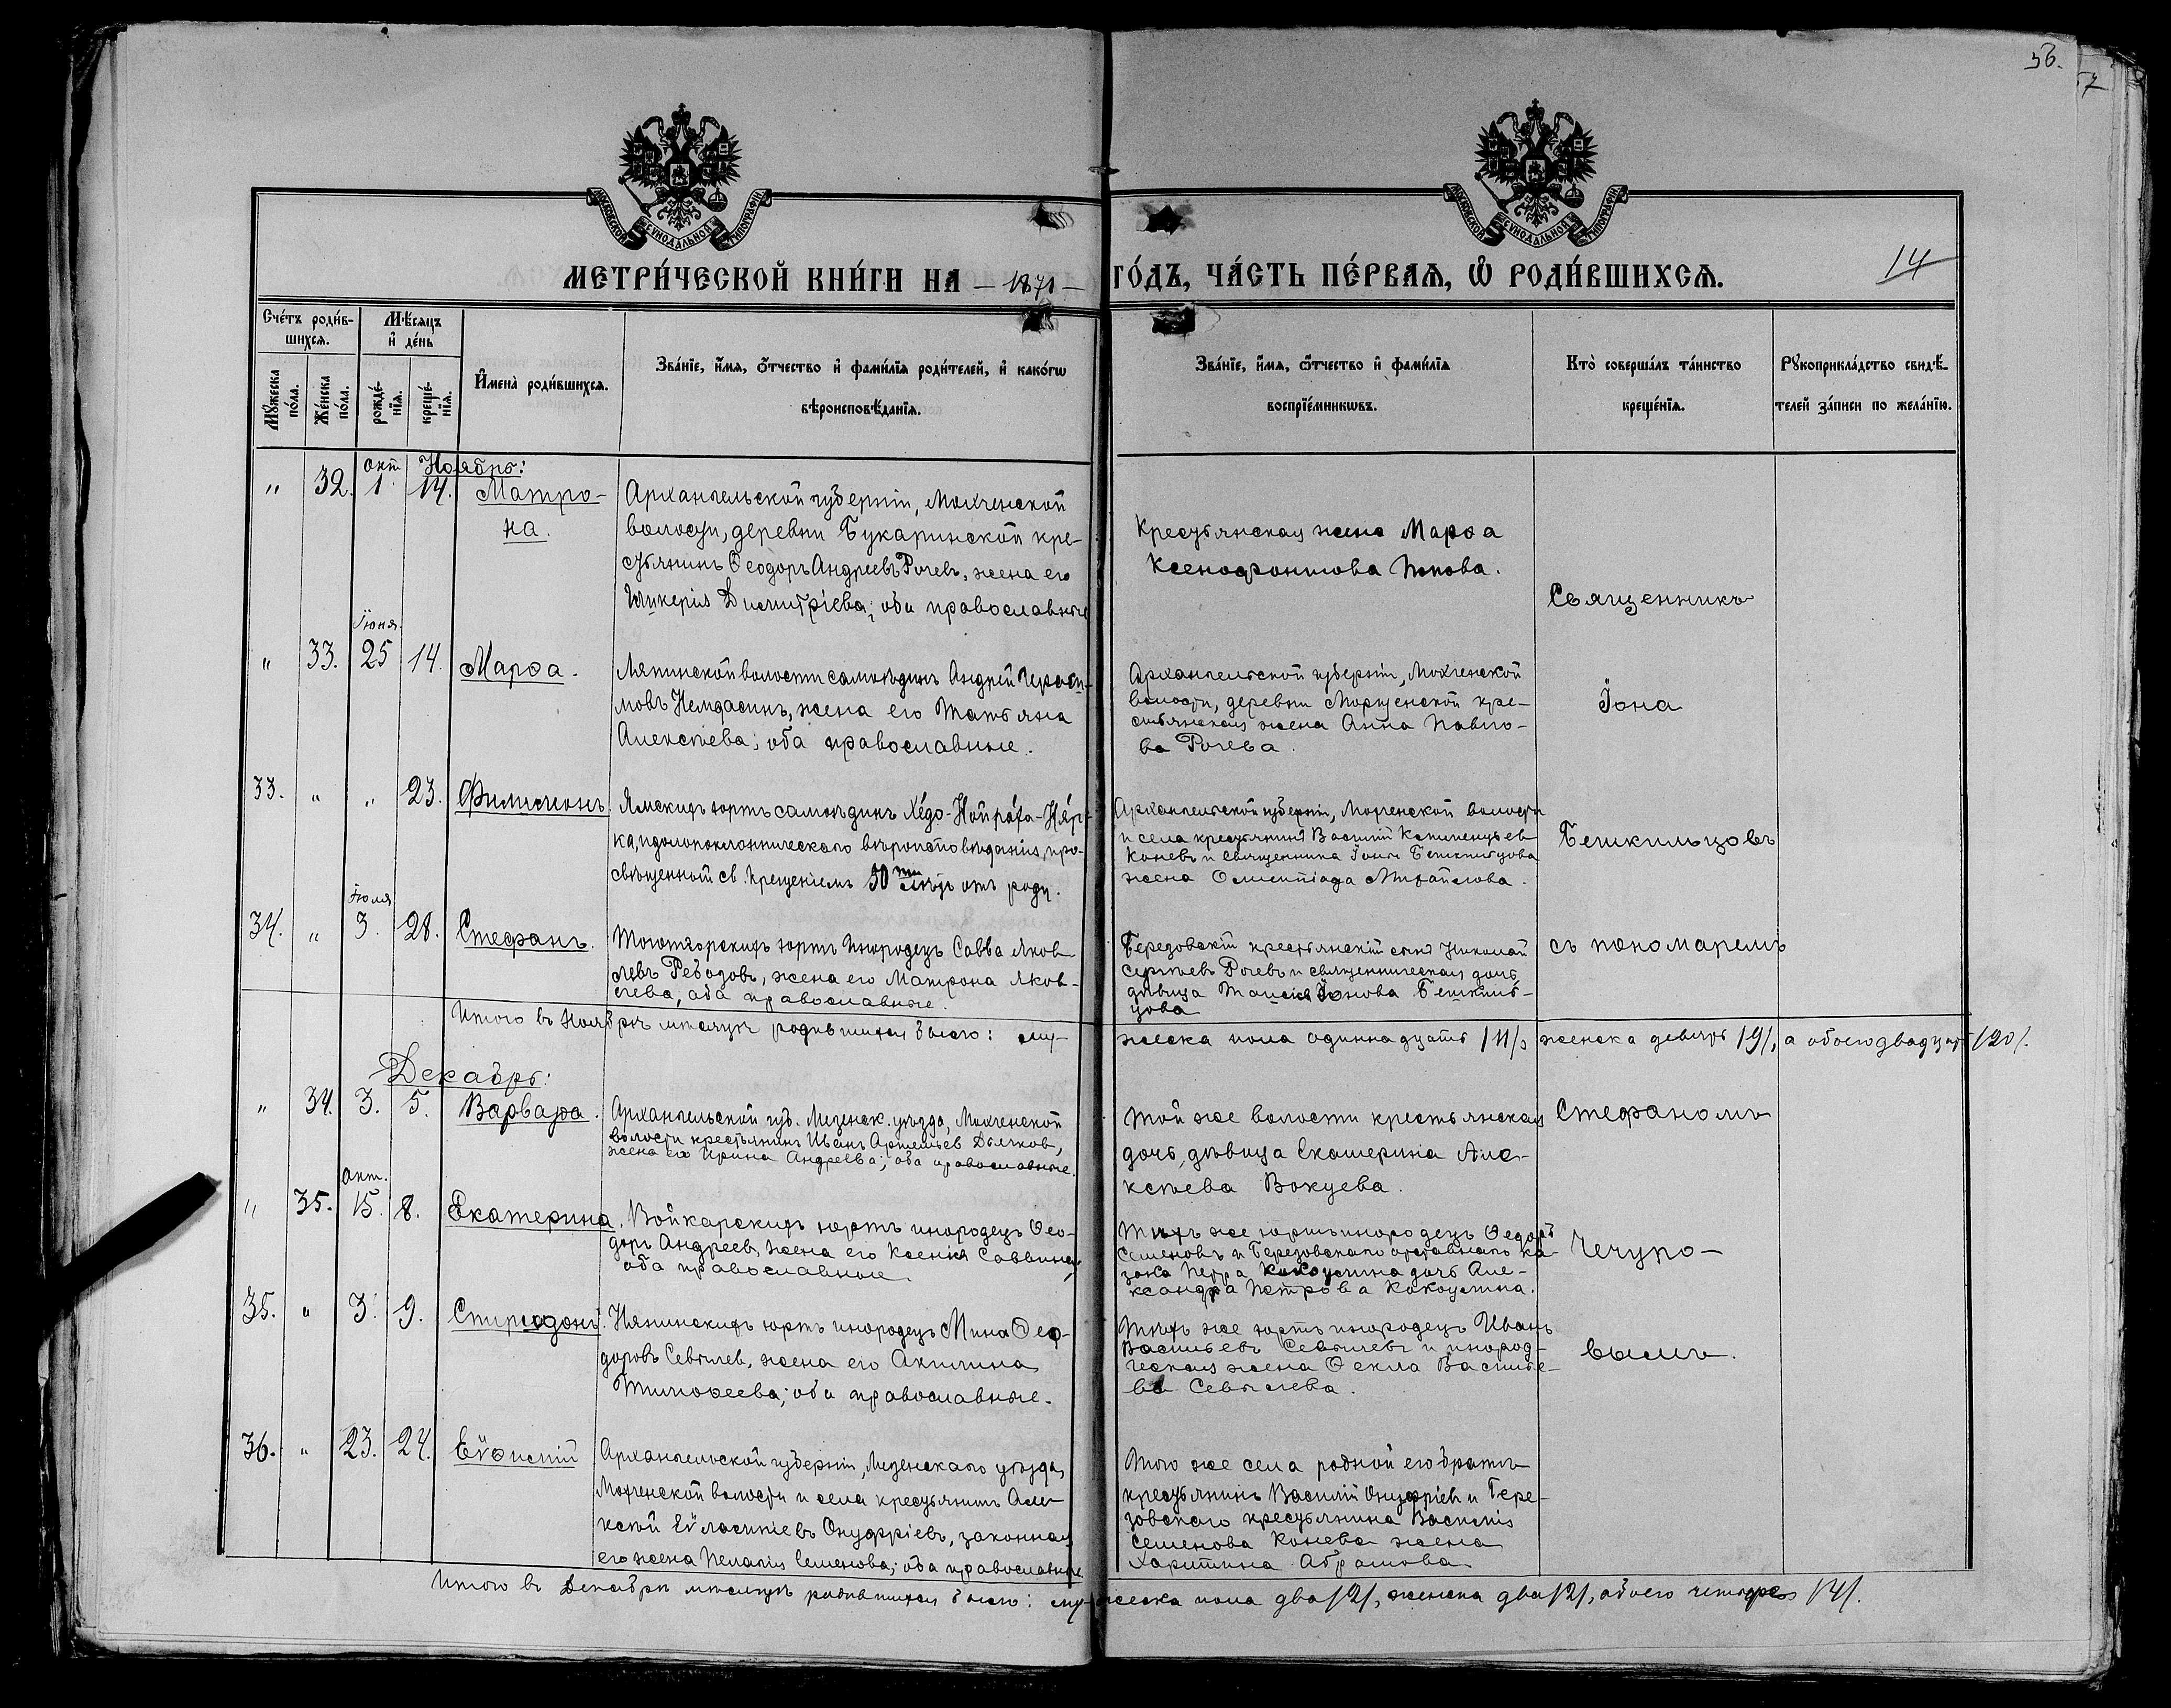 56.
57
МОСКОВСКОЙ СѴНОДАЛЬНОЙ ТИПОГРАФІИ
МОСКОВСКОЙ СѴНОДАЛЬНОЙ ТИПОГРАФІИ
14
МЕТРИ́ЧЕСКОЙ КНИ́ГИ НА – 1871 – ГО́ДЪ, ЧА́СТЬ ПЕ́РВАѦ, Ѡ҆ РОДИ́ВШИХСѦ.
Сче́тъ роди́в-
шихсѧ.
Мѣ́сѧцъ
и҆ де́нь
Мꙋ́жеска
по́ла.
Же́нска
по́ла.
рожде́-
нїѧ.
креще́-
нїѧ.
И҆мена̀ роди́вшихсѧ.
Зва́нїе, и҆́мѧ, ѻ҆́тчество и҆ фами́лїѧ роди́телей, и҆ како́гѡ
вѣроисповѣ́данїѧ.
Зва́нїе, и҆́мѧ, ѻ҆́тчество и҆ фами́лїѧ
воспрїе́мникѡвъ.
Кто̀ соверша́лъ та́инство
креще́нїѧ.
Рꙋкоприкла́дство свидѣ́-
телей за́писи по жела́нїю.
окт. Ноябрь:
" 32. 1. 14. Матро-
на.
Архангельской губерніи, Мохченской
волости, деревни Букаринской кре-
стьянинъ Ѳеодоръ Андреевъ Рочевъ, жена его
Гликерія Димитріева; оба православные
Крестьянская жена Марѳа
Ксенофонтова Попова.
Священникъ
Іюня.
" 33. 25 14. Марѳа.
Ляпинской волости самоѣдинъ Андрей Гераси-
мовъ Немдасинъ, жена его Татьяна
Алексѣева; оба православные.
Архангельской губерніи, Мохченской
волости, деревни Мошьенской кре-
стьянская жена Анна Павло-
ва Рочева.
Іона
33. " " 23. Филимонъ.
самоѣдинъ Хе́до-
идолопоклонническаго вѣроисповѣданія, про-
свѣщенный св. Крещеніемъ 50ти лѣтъ отъ роду.
Архангельской губерніи, Мохченской волости
и села крестьянинъ Василій Климентьев
Коневъ и священника Іоны Бешкильцова
жена Олимпіада Михайлова.
Бешкильцовъ
Іюля
34. " 3. 28. Стефанъ.
юртъ инородецъ Савва Яков-
левъ Ребадовъ, жена его Матрона Яков-
лева, оба православные.
Березовскій крестьянскій сынъ Николай
Сергѣевъ Рочевъ и священническая дочь
дѣвица Таисія Іонова Бешкиль-
цова
съ пономаремъ
Итого въ Ноябрѣ мѣсяцѣ родившихся было: му-
жеска пола одиннадцать /11/, женска девять /9/, а обоего двадцать /20/.
Декабрь:
" 34. 3. 5. Варвара.
Архангельской губ. Мезенск. уѣзда, Мохченской
волости крестьянинъ Иванъ Артемьев Дьячков,
жена его Ирина Андреева; оба православные.
Той же волости крестьянская
дочь, дѣвица Екатерина Але-
ксѣева Вокуева.
Стефаномъ
окт.
" 35. 15. 8. Екатерина.
Войкарскихъ юртъ инородецъ Ѳео-
доръ Андреев, жена его Ксенія Саввина,
оба православные.
Тѣхъ же юртъ инородецъ Ѳедоръ
Семеновъ и Березовскаго отставнаго ка-
зака Петра Кокоулина дочь Але-
ксандра Петрова Кокоулина.
Чечуро-
35. " 3. 9. Спиридонъ.
юртъ инородецъ Мина Ѳео-
доровъ Севылев, жена его Акилина
Тимоѳеева; оба православные.
Тѣхъ же юртъ инородецъ Иванъ
Васильевъ Севылевъ и инород-
ческая жена Ѳекла Василье-
ва Севылева.
вымъ.
36. " 23. 24. Еѵѳимій
Архангельской губерніи, Мезенскаго уѣзда,
Мохченской волости и села крестьянинъ Але-
ксѣй Еѵлампіевъ Онуфріевъ, законная
его жена Пелагія Семенова; оба православные
Того же села родной его братъ
крестьянинъ Василій Онуфріев и Бере-
зовскаго крестьянина Василія
Семенова Конева жена
Харитина Абрамова
Итого въ Декабрѣ мѣсяцѣ родившихся было: му-жеска пола два /2/, женска два /2/, обоего четыре /4/.